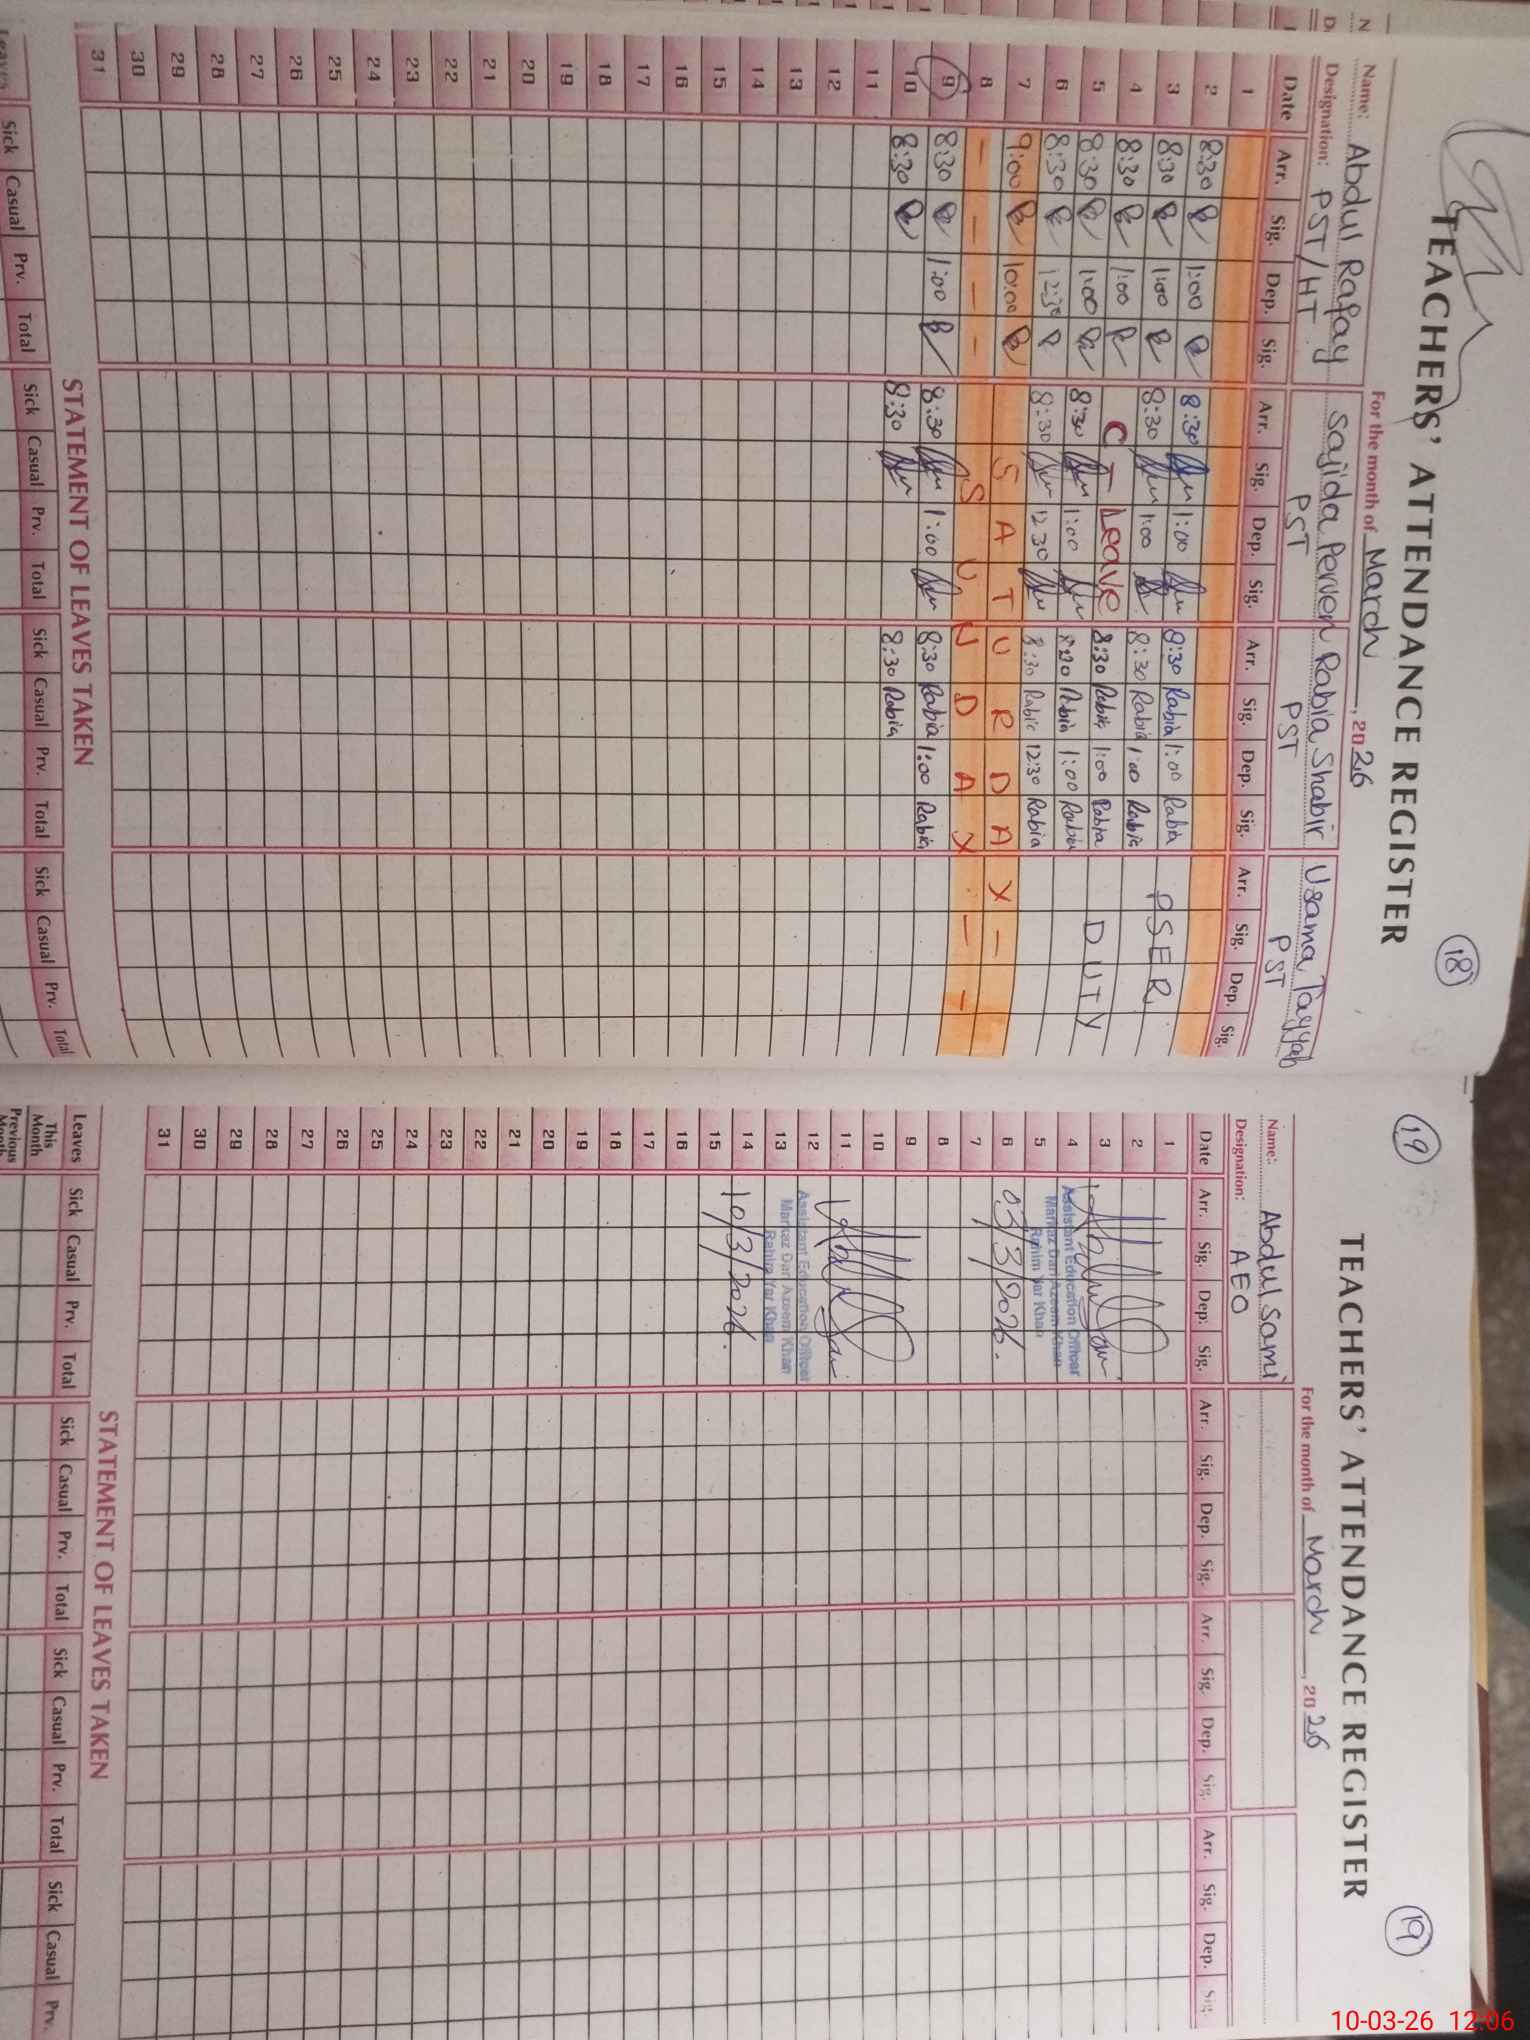 18
TEACHERS' ATTENDANCE REGISTER
For the month of March, 2026
Name: Abdul Rafay Sajida Perven Rabia Shabir Usama Tayyab
Designation: PST/HT PST PST PST
Date Arr. Sig. Dep. Sig. Arr. Sig. Dep. Sig. Arr. Sig. Dep. Sig. Arr. Sig. Dep. Sig.
1
2 8:30 1:00 8:30 1:00 8:30 Rabia 1:00 Rabia
3 8:30 1:00 8:30 1:00 8:30 Rabia 1:00 Rabia PSER
4 8:30 1:00 C-Leave 8:30 Rabia 1:00 Rabia
5 8:30 1:00 8:30 1:00 8:30 Rabia 1:00 Rabia DUTY
6 8:30 12:30 8:30 12:30 8:30 Rabia 12:30 Rabia
7 9:00 10:00 SATURDAY -
8 - - - - SUNDAY - -
9 8:30 1:00 8:30 1:00 8:30 Rabia 1:00 Rabia
10 8:30 8:30 8:30 Rabia
11
12
13
14
15
16
17
18
19
20
21
22
23
24
25
26
27
28
29
30
31
STATEMENT OF LEAVES TAKEN
Leaves Sick Casual Prv. Total Sick Casual Prv. Total Sick Casual Prv. Total Sick Casual Prv. Total
19 19
TEACHERS' ATTENDANCE REGISTER
For the month of March, 2026
Name: Abdul Sami
Designation: AEO
Date Arr. Sig. Dep. Sig. Arr. Sig. Dep. Sig. Arr. Sig. Dep. Sig. Arr. Sig. Dep. Sig.
1
2
3
4 Assistant Education Officer
Markaz Dari Azeem Khan
5 Rahim Yar Khan
6 03/3/2026.
7
8
9
10
11
12 Assistant Education Officer
13 Markaz Dari Azeem Khan
Rahim Yar Khan
14 10/3/2026.
15
16
17
18
19
20
21
22
23
24
25
26
27
28
29
30
31
STATEMENT OF LEAVES TAKEN
Leaves Sick Casual Prv. Total Sick Casual Prv. Total Sick Casual Prv. Total Sick Casual Prv.
This Month
Previous Month
10-03-26 12:06